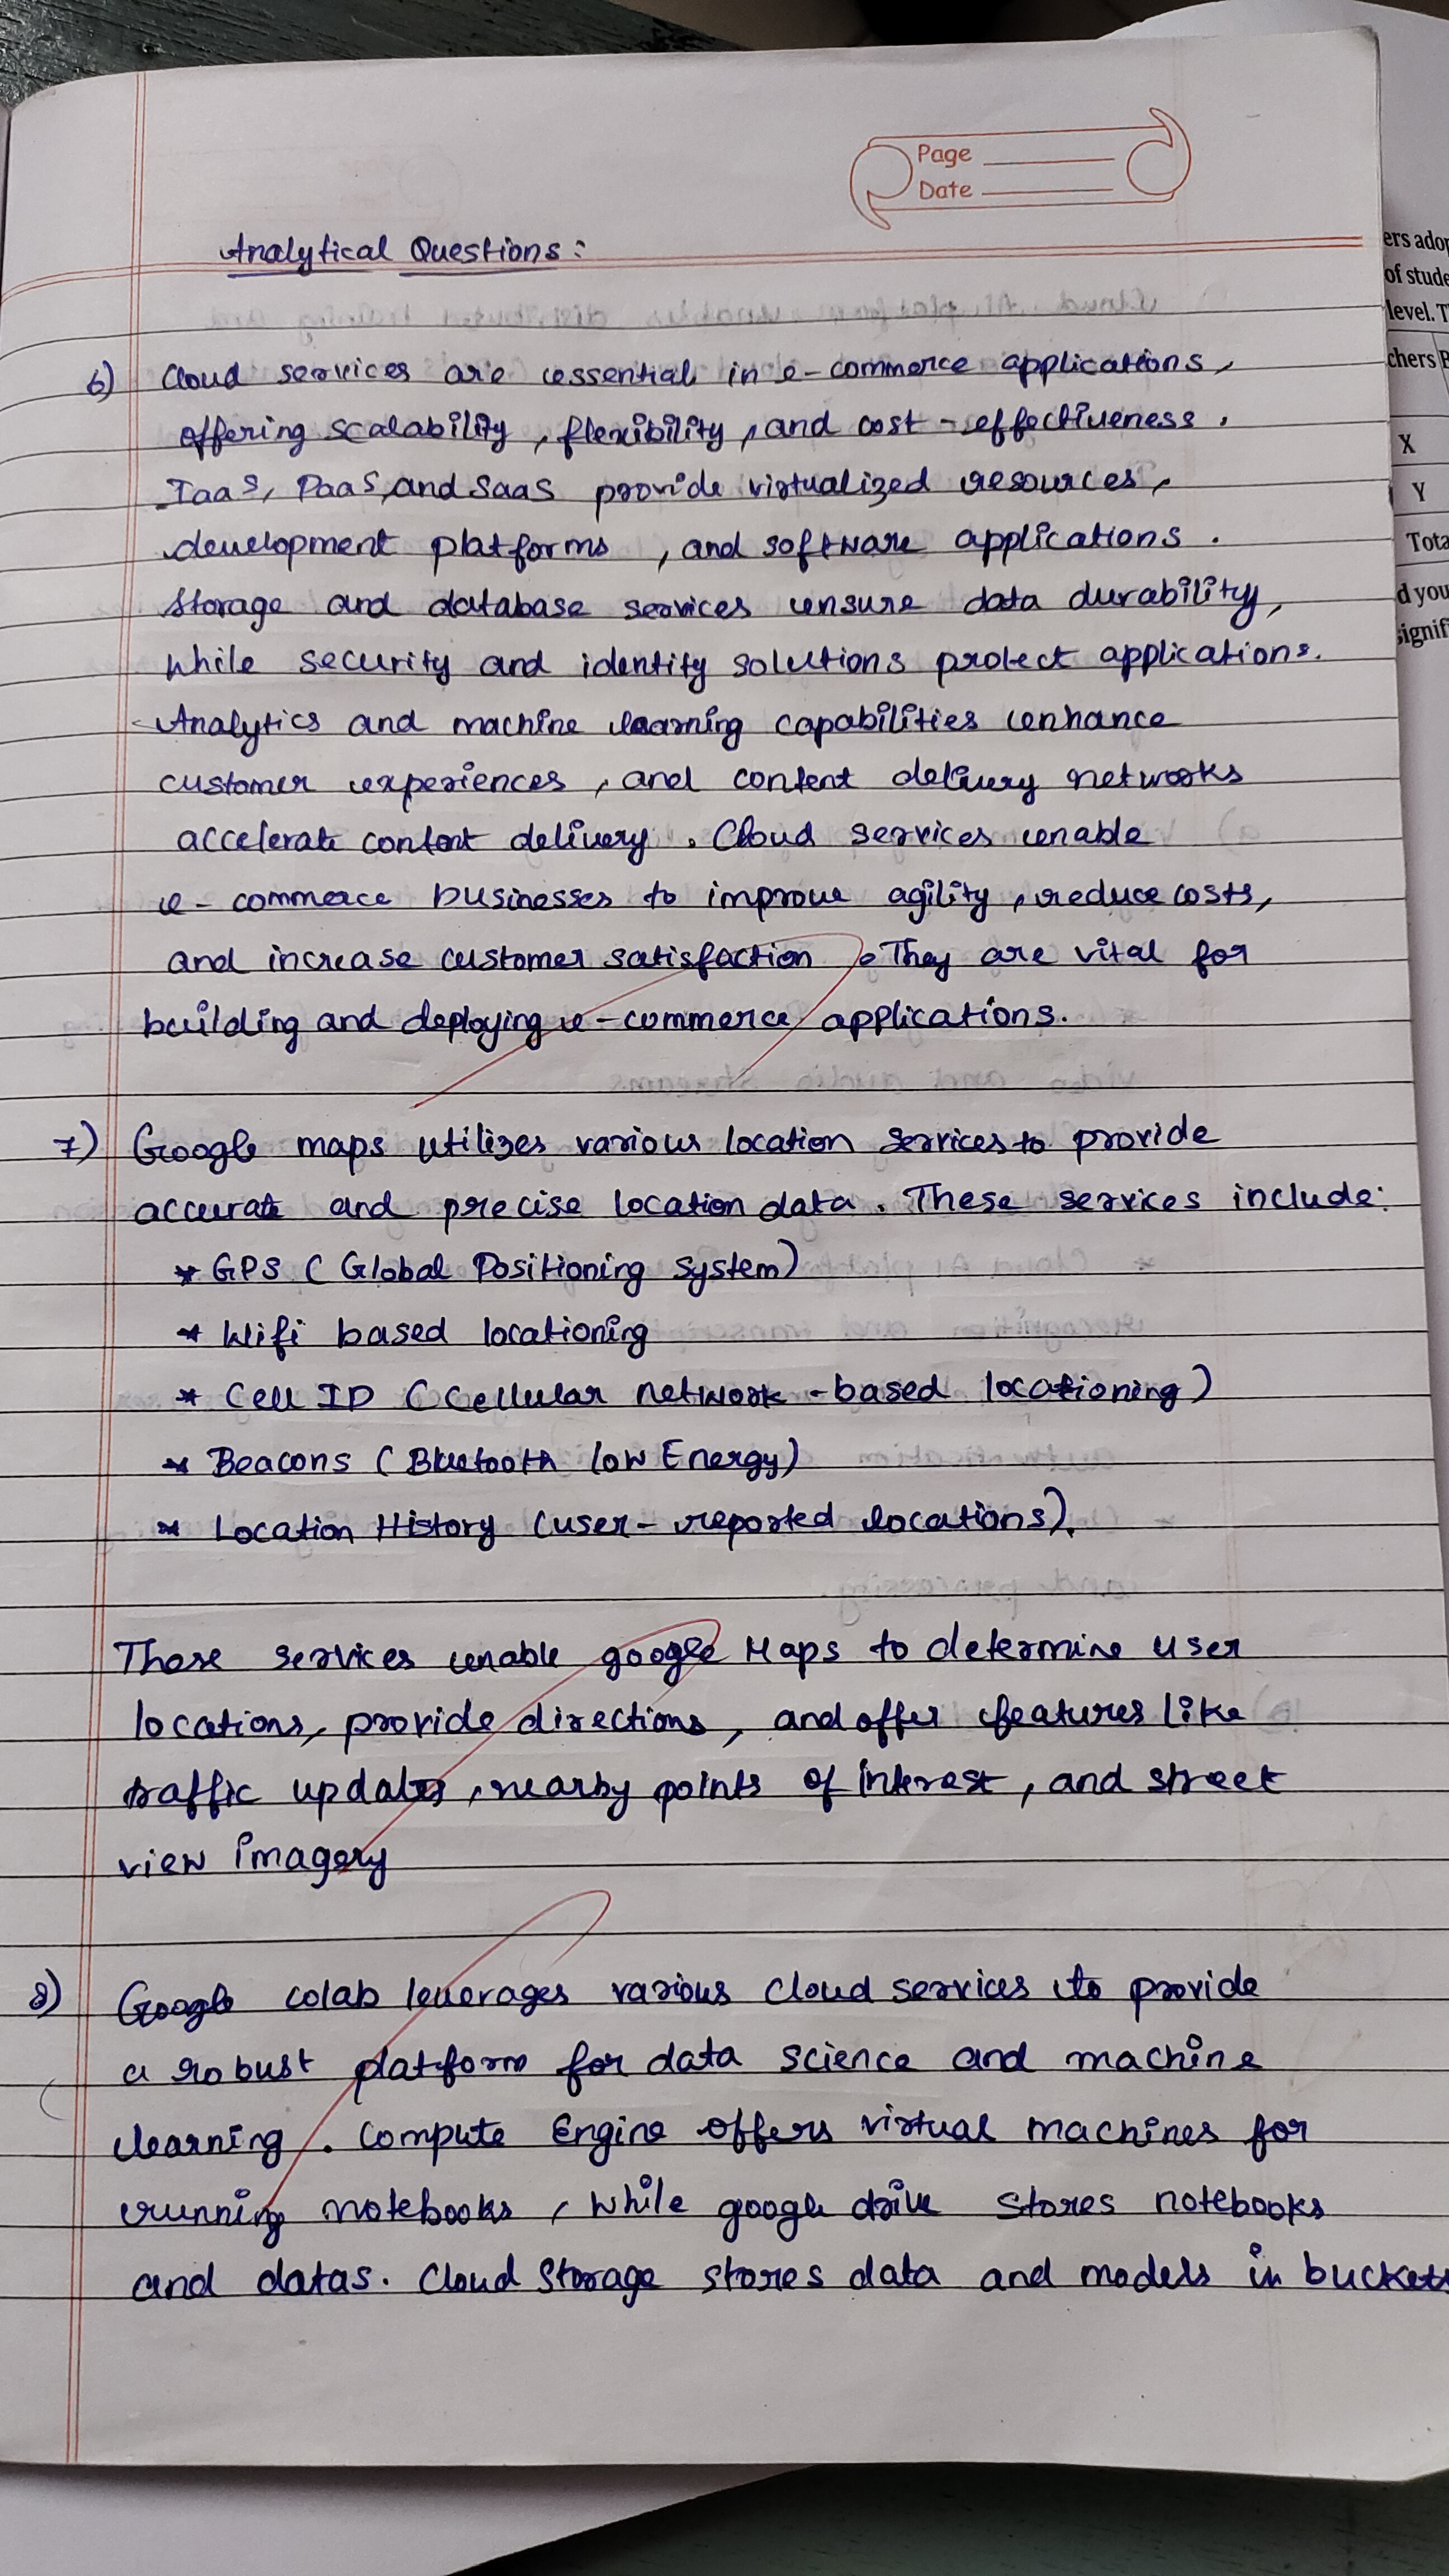 Page
Date
Analytical Questions:
6) Cloud services are essential in e-commerce applications,
offering scalability, flexibility, and cost-effectiveness.
IaaS, PaaS, and SaaS provide virtualized resources,
development platforms, and software applications.
Storage and database services ensure data durability,
while security and identity solutions protect applications.
Analytics and machine learning capabilities enhance
customer experiences, and content delivery networks
accelerate content delivery. Cloud services enable
e-commerce businesses to improve agility, reduce costs,
and increase customer satisfaction. They are vital for
building and deploying e-commerce applications.
7) Google maps utilizes various location services to provide
accurate and precise location data. These services include:
* GPS (Global Positioning System)
* Wifi based locationing
* Cell ID (Cellular network-based locationing)
* Beacons (Bluetooth low Energy)
* Location History (user-reported locations).
These services enable google Maps to determine user
locations, provide directions, and offer features like
traffic updates, nearby points of interest, and street
view imagery
8) Google colab leverages various cloud services to provide
a robust platform for data science and machine
learning. Compute Engine offers virtual machines for
running notebooks, while google drive stores notebooks
and datas. Cloud Storage stores data and models in buckets
ers adop
of stude
level. T
chers
X
Y
Tota
d you
signif